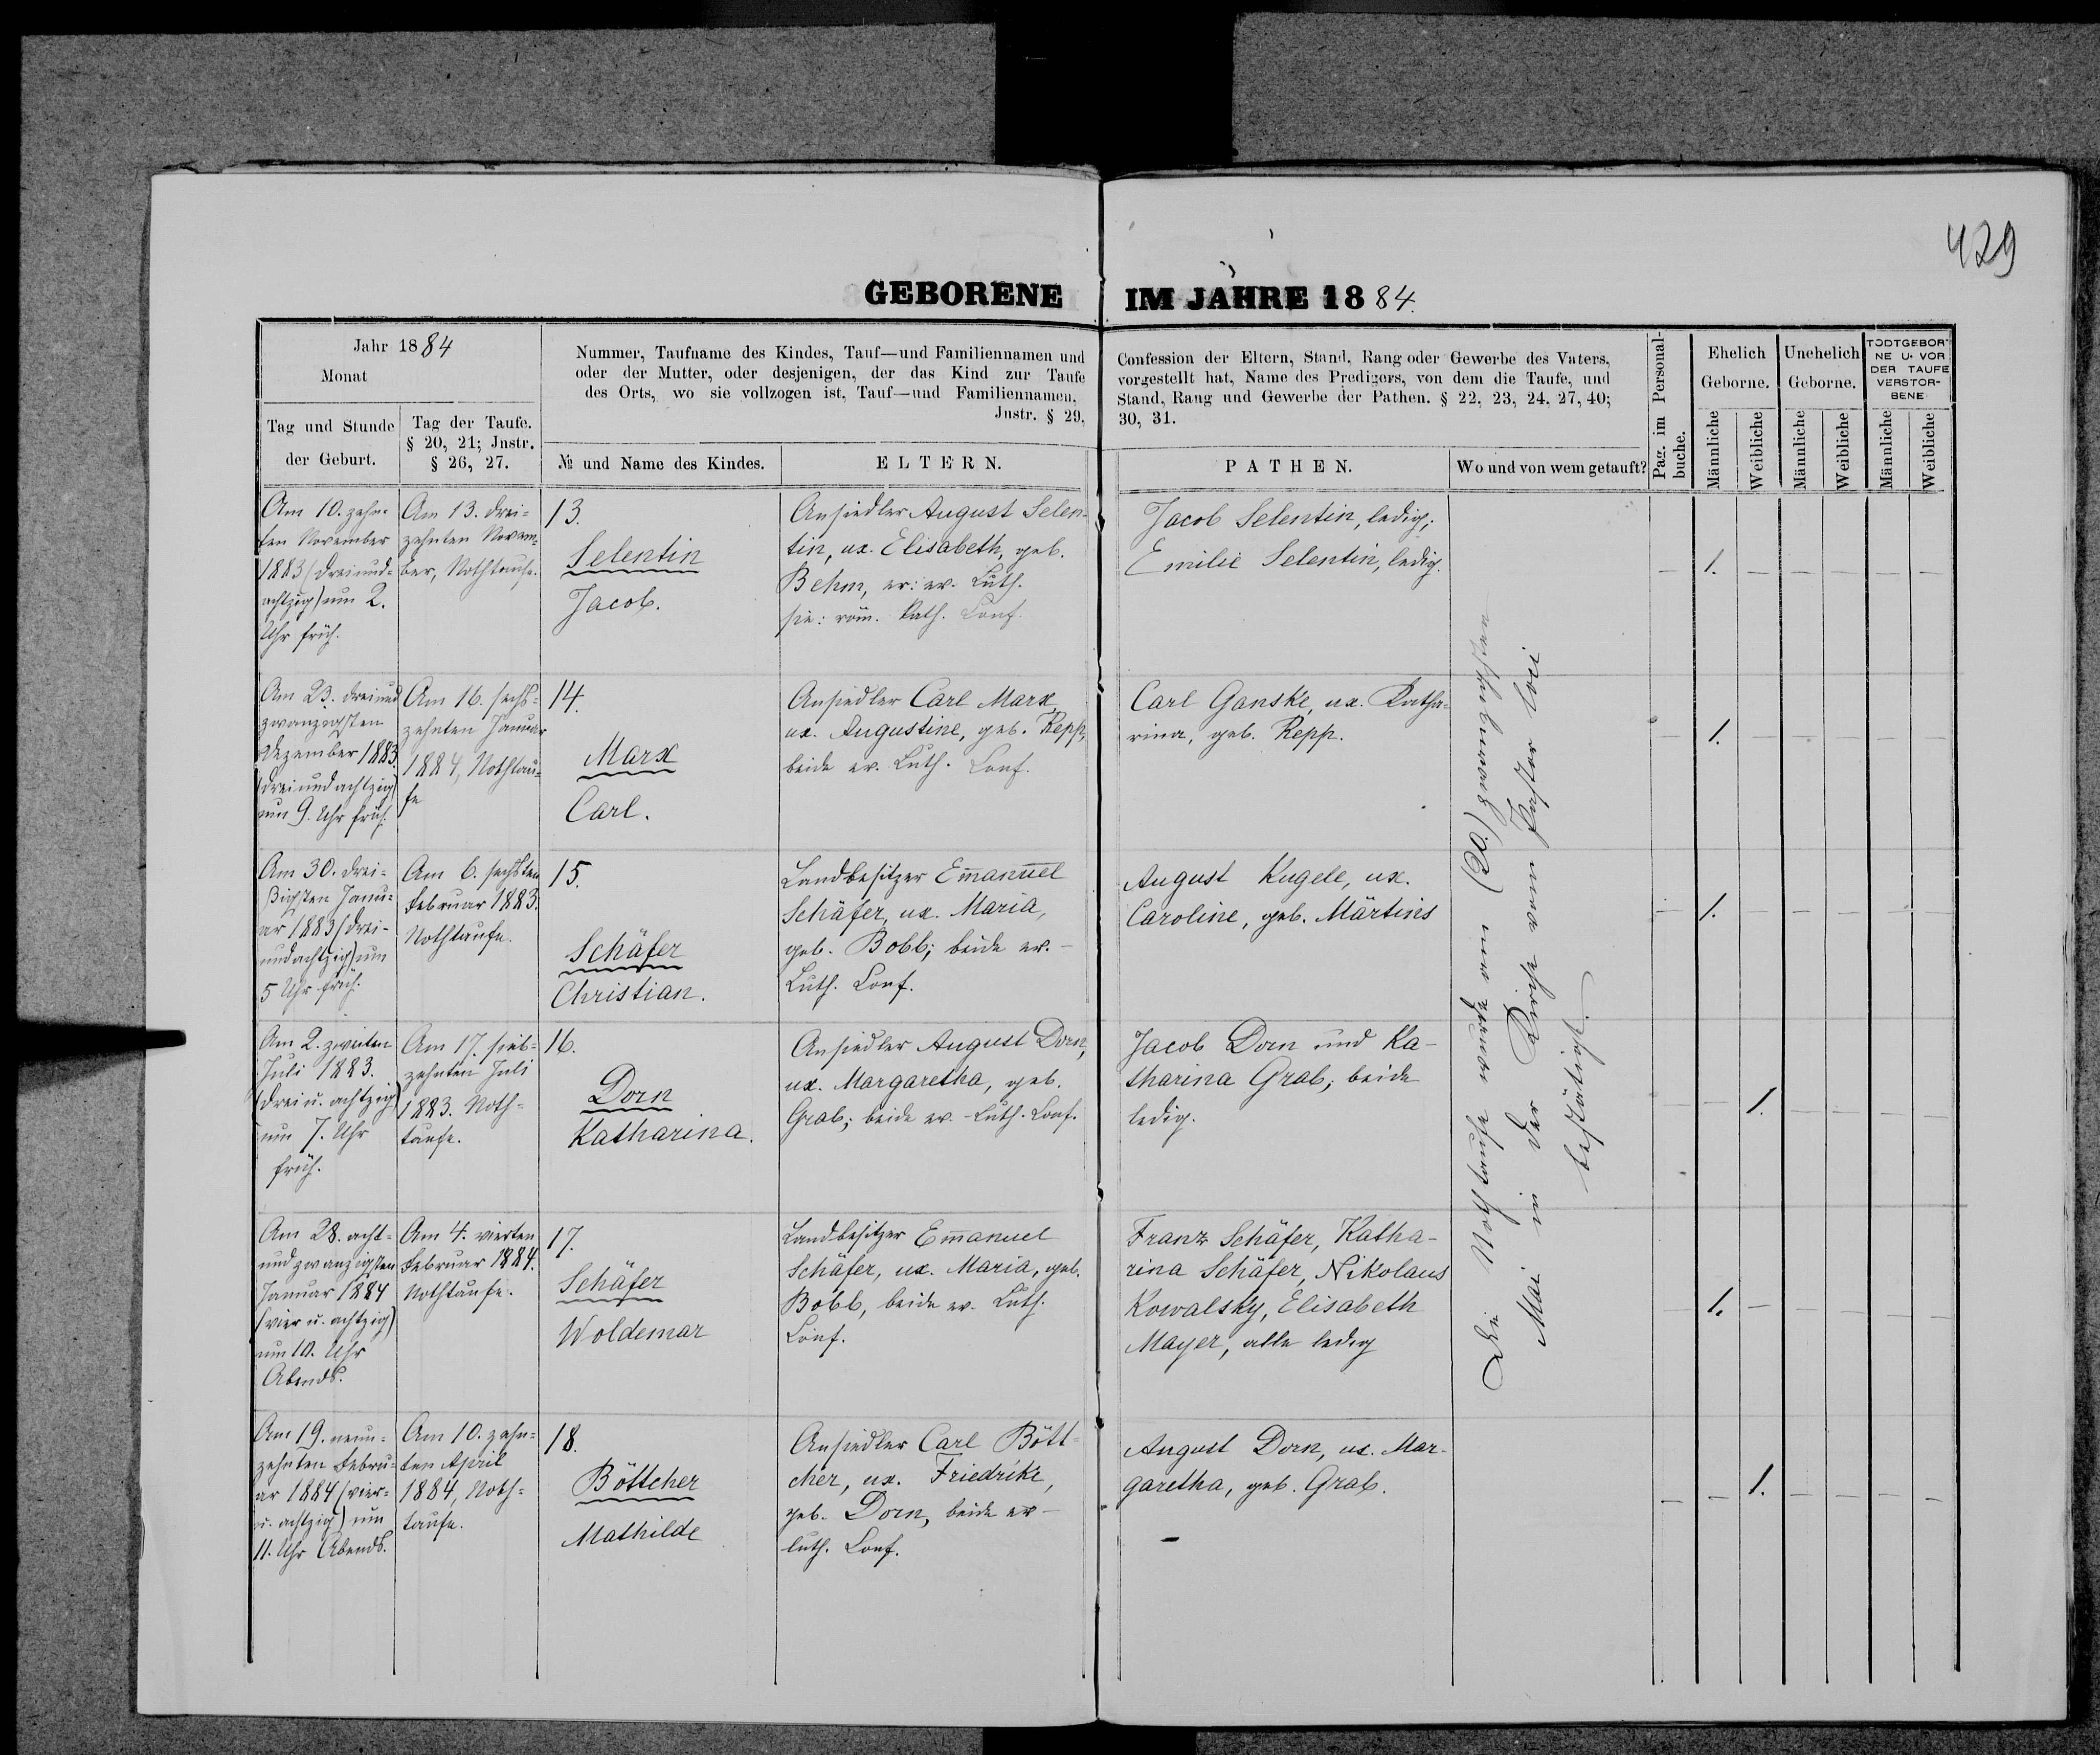 429
GEBORENE IM JAHRE 1884.
Jahr 1884
Monat
Tag und Stunde
der Geburt.
Tag der Taufe.
§ 20, 21; Jnstr.
§ 26, 27.
Nummer, Taufname des Kindes, Tauf—und Familiennamen und
oder der Mutter, oder desjenigen, der das Kind zur Taufe
des Orts, wo sie vollzogen ist, Tauf—und Familiennamen,
Justr. § 29,
№ und Name des Kindes.
ELTERN.
Confession der Eltern, Stand, Rang oder Gewerbe des Vaters,
vorgestellt hat, Name des Predigers, von dem die Taufe, und
Stand, Rang und Gewerbe der Pathen. § 22, 23, 24, 27, 40;
30, 31.
PATHEN.
Wo und von wem getauft?
Pag. im Personal-
buche.
Ehelich
Geborne.
Unehelich
Geborne.
TODTGEBOR-
NE U. VOR
DER TAUFE
VERSTOR-
BENE
Männliche
Weibliche
Männliche
Weibliche
Männliche
Weibliche
Am 10. zehn-
ten November
1883 (dreiund-
achtzig) um 2.
Uhr früh.
Am 13. drei-
zehnten Novem-
ber, Nothtaufe.
13.
Selentin
Jacob.
Ansiedler August Selen-
tin, ux. Elisabeth, geb.
Behm, er: ev. Luth.
sie: röm. Kath. Conf.
Jacob Selentin, ledig;
Emilie Selentin, ledig.
— 1. — — — — —
Am 23. dreiund
zwanzigsten
Dezember 1883
(dreiundachtzig)
um 9. Uhr früh.
Am 16. sechs-
zehnten Januar
1884, Nothtau-
fe
14.
Marx
Carl.
Ansiedler Carl Marx,
ux. Augustine, geb. Repp,
beide ev. Luth. Conf.
Carl Ganske, ux. Katha-
rina, geb. Repp.
— 1. — — — — —
Am 30. drei-
ßigsten Janu-
ar 1883 (drei-
undachtzig) um
5 Uhr früh.
Am 6. sechsten
Februar 1883.
Nothtaufe.
15.
Schäfer
Christian.
Landbesitzer Em̄anuel
Schäfer, ux. Maria,
geb. Bobb; beide ev.-
Luth. Conf.
August Kugele, ux.
Caroline, geb. Märtins
— 1. — — — — —
Am 2. zweiten
Juli 1883.
(drei u. achtzig)
um 7. Uhr
früh.
Am 17. sieb-
zehnten Juli
1883. Noth-
taufe.
16.
Dorn
Katharina.
Ansiedler August Dorn,
ux. Margaretha, geb.
Grab; beide ev.-Luth. Conf.
Jacob Dorn und Ka-
tharina Grab; beide
ledig.
— — 1. — — — —
Am 28. acht-
undzwanzigsten
Januar 1884
(vier u. achtzig)
um 10. Uhr
Abends.
Am 4. vierten
Februar 1884.
Nothtaufe.
17.
Schäfer
Woldemar
Landbesitzer Em̄anuel
Schäfer, ux. Maria, geb.
Bobb, beide ev. Luth.
Conf.
Franz Schäfer, Katha-
rina Schäfer, Nikolaus
Kowalsky, Elisabeth
Mayer, alle ledig
— 1. — — — — —
Am 19. neun-
zehnten Febru-
ar 1884 (vier-
u. achtzig) um
11. Uhr Abends.
Am 10. zehn-
ten April
1884, Noth-
taufe.
18.
Böttcher
Mathilde
Ansiedler Carl Bött-
cher, ux. Friedrike,
geb. Dorn, beide ev-
luth. Conf.
August Dorn, ux. Mar-
garetha, geb. Grab.
— — 1. — — — —
Die Nothtaufe wurde am (20) zwanzigsten
Mai in der Kirche vom Pastor
bestätigt.